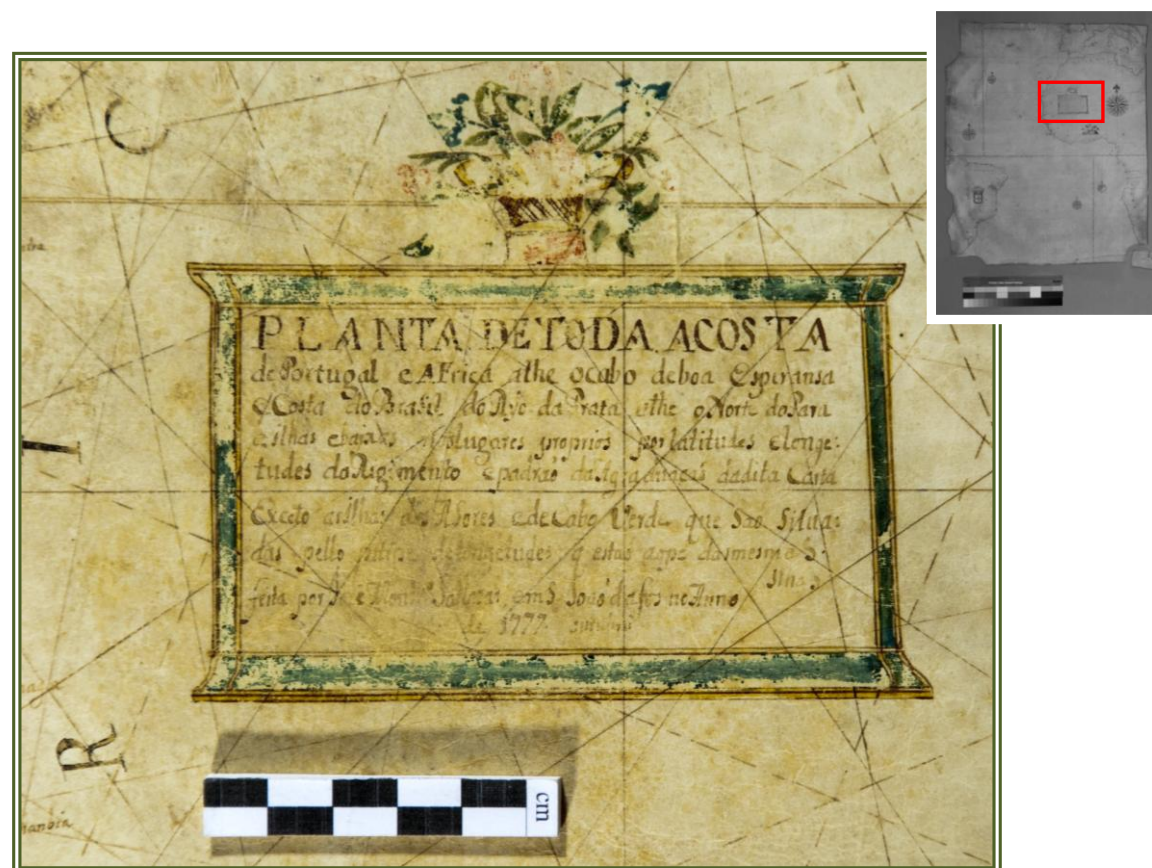 C
I
R
PLANTA DE TODA ACOSTA
de Portugal e AFrica athe ocabo deboa Esperansa
eCosta do Brasil do Ryo da Prata athe oNorte doPara
eilhas ebaixos noslugares proprios porlatitudes elonge:
tudes do Rigimento Epadraõ dadita Carta
Exceto asilhas dos Asores edeCabo Verde que Saõ Situa:
das pello de longetudes q estaõ aope damesma
feita por em S. Joaõ da fos no Anno
de 1777
cm